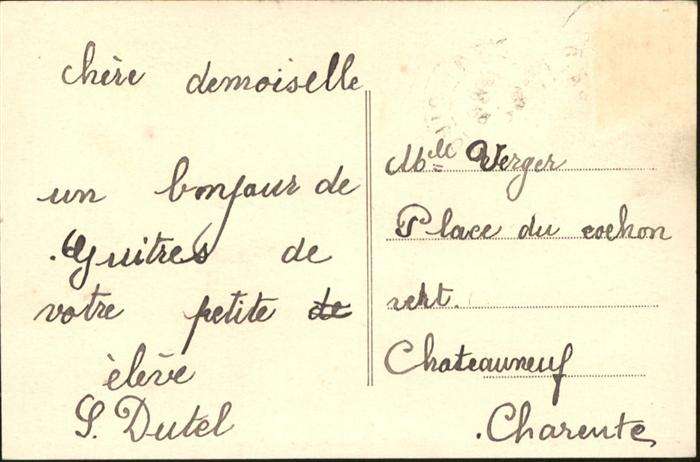 chère demoiselle
un bonjour de
Guitres de
votre petite de
élève
S. Dutel
Mlle Verger
Place du cochon
vert.
Chateauneuf
Charente